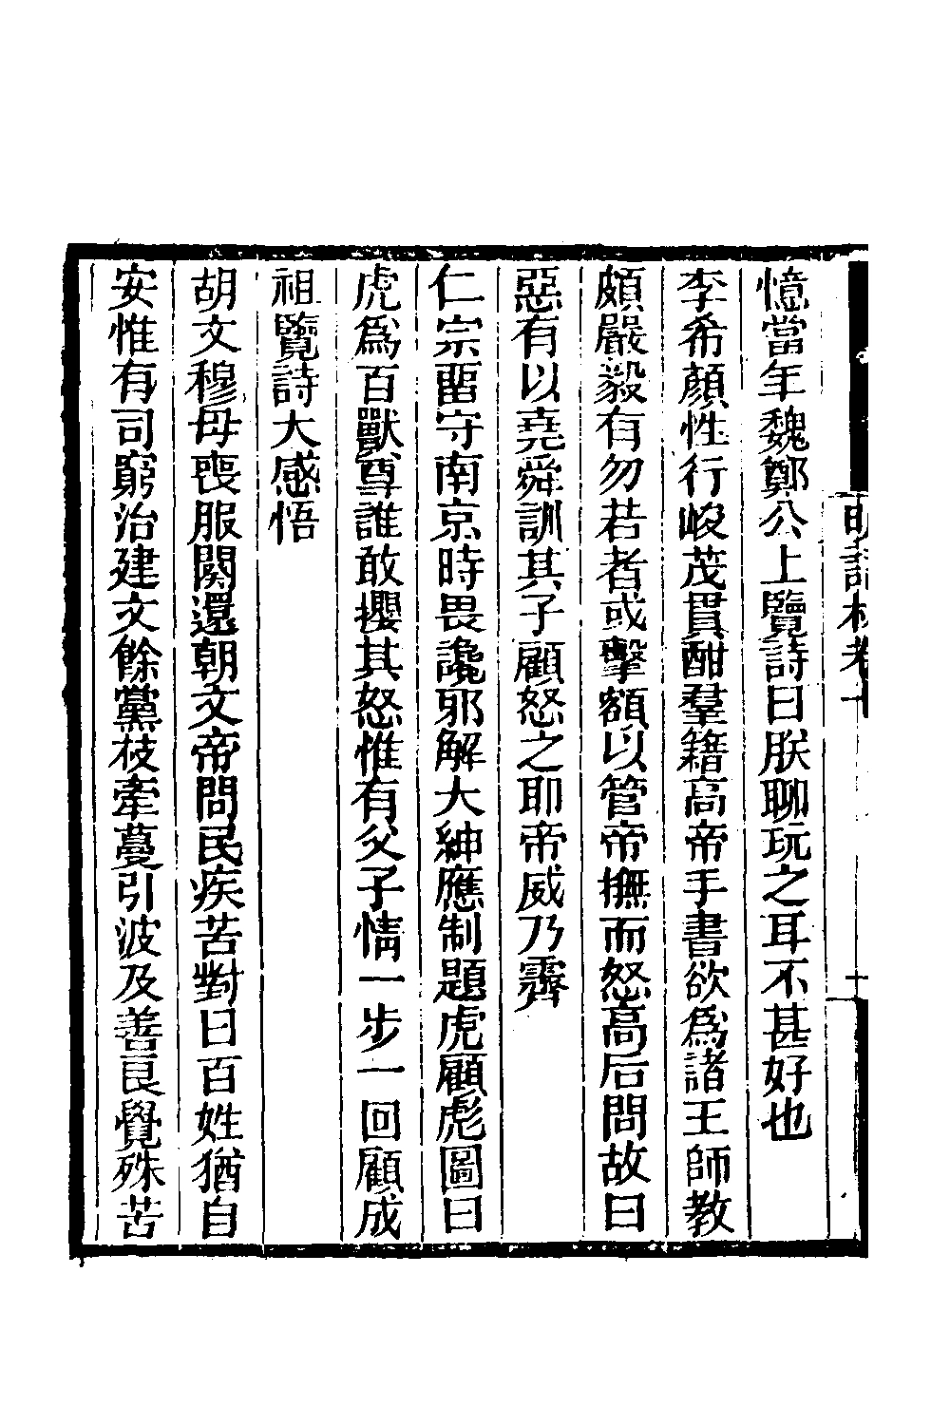 憶當年魏鄭公上覽詩曰朕聊玩之耳不甚好也
李希顔性行峻茂貫酣羣籍高帝手書欲爲諸王師教
頗嚴毅有勿若者或擊額以管帝撫而怒高后問故曰
惡有以堯舜訓其子顧怒之耶帝威乃霽
仁宗畱守南京時畏讒邪解大紳應制題虎顧彪圖曰
虎爲百獸尊誰敢攖其怒惟有父子情一步一回顧成
祖覽詩大感悟
胡文穆母喪服闋還朝文帝問民疾苦對曰百姓猶自
安惟有司窮治建文餘黨枝牽蔓引波及善良覺殊苦